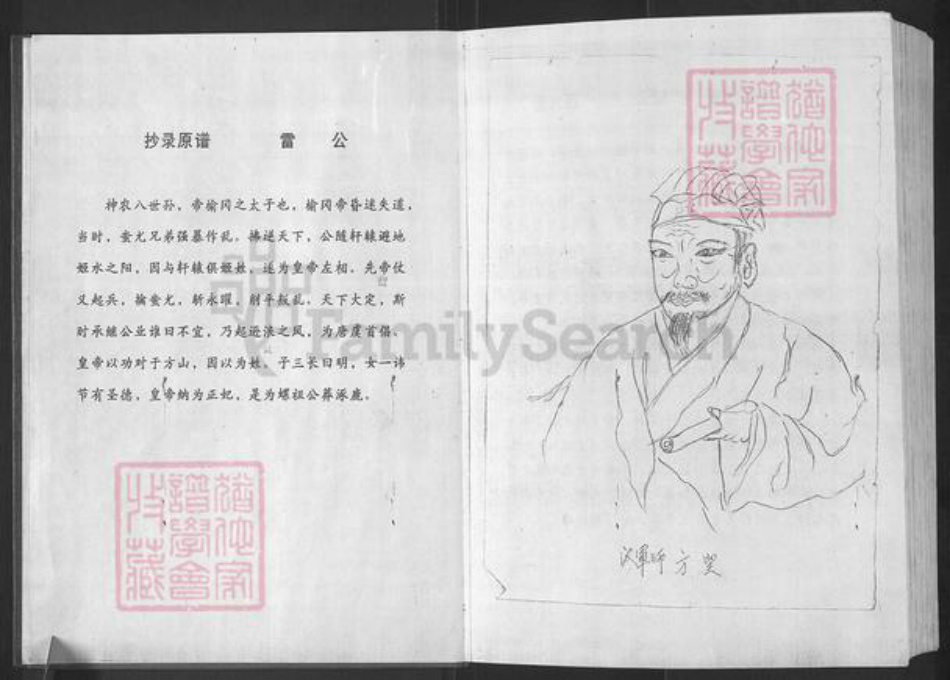 抄录原谱 雷 公
神农八世孙，帝榆冈之太子也，榆冈帝昏迷失道，
当时，蚩尤兄弟强暴作乱。拂逆天下，公随轩辕避地
姬水之阳，因与轩辕俱姬姓，遂为皇帝左相。先帝仗
义起兵，擒蚩尤，斩永曜，削平叛乱，天下大定，斯
时承继公业谁曰不宜，乃起逊浪之风，为唐虞首倡。
皇帝以功对于方山，因以为姓，子三长曰明，女一讳
节有圣德，皇帝纳为正妃，是为螺祖公葬涿鹿。
FamilySearch
谱学会
收藏
谱学会
收藏
汉軍师方望